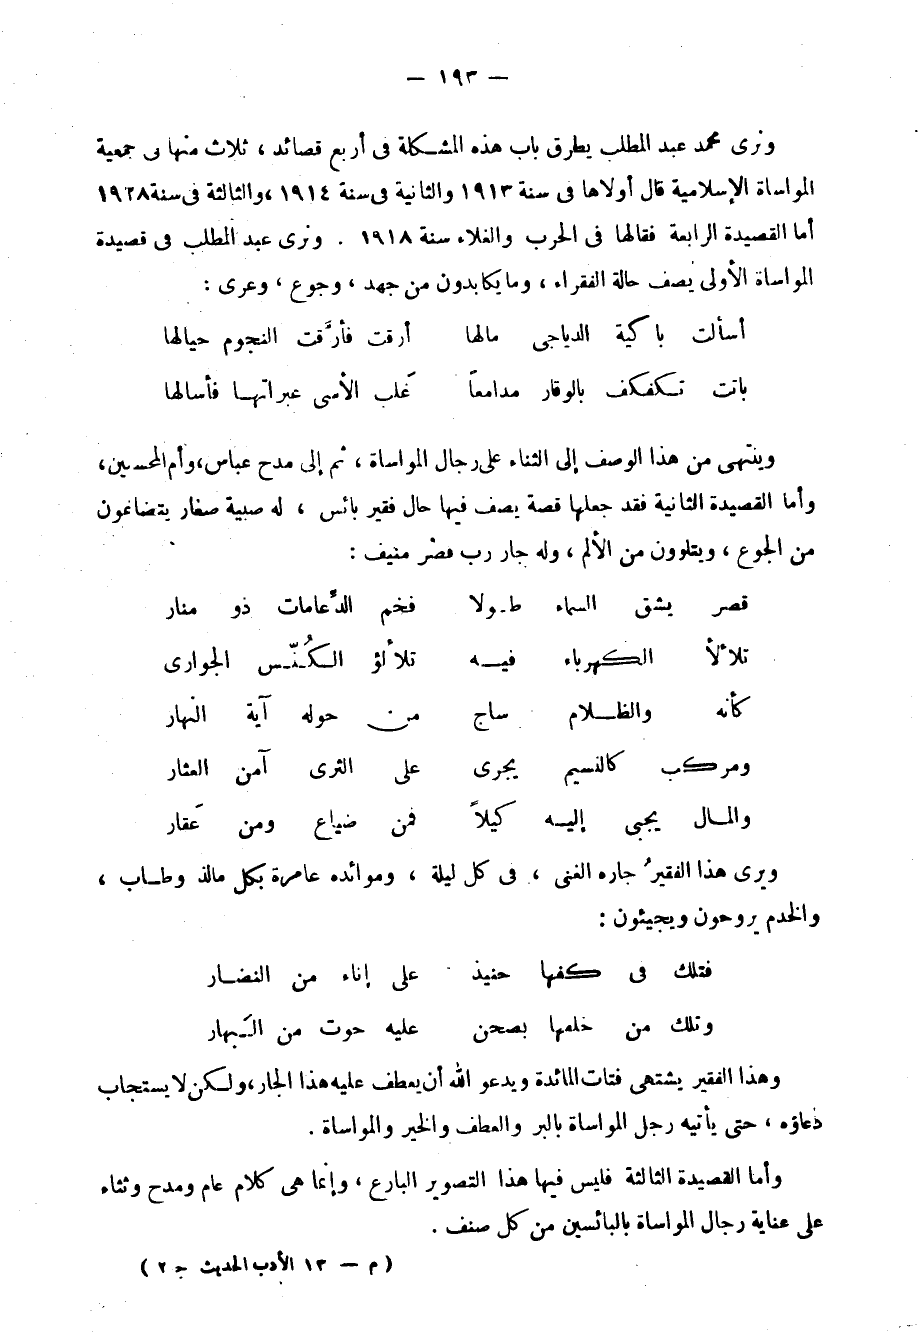 — ١٩٣ —
ونرى محمد عبد المطلب يطرق باب هذه المشكلة فى أربع قصائد ، ثلاث منها فى جمعية
المواساة الإسلامية قال أولاها فى سنة ١٩١٣ والثانية فى سنة ١٩١٤ ، والثالثة فى سنة ١٩٢٨
أما القصيدة الرابعة فقالها فى الحرب والغلاء سنة ١٩١٨ . ونرى عبد المطلب فى قصيدة
المواساة الأولى يصف حالة الفقراء ، وما يكابدون من جهد ، وجوع ، وعرى :
أسألت باكية الدياجى مالها أرقت فأرَّقت النجوم حيالها
باتت تكفكف بالوقار مدامعاً غَلب الأسى عبراتها فأسالها
وينتهى من هذا الوصف إلى الثناء على رجال المواساة ، ثم إلى مدح عباس ، وأم المحسنين ،
وأما القصيدة الثانية فقد جعلها قصة يصف فيها حال فقير بائس ، له صبية صغار يتضاغون
من الجوع ، ويتلوون من الألم ، وله جار رب قصْر منيف :
قصر يشق السماء طولا فخم الدِّعامات ذو منار
تلألأ الكهرباء فيه تلألؤ الكُنّس الجوارى
كأنه والظلام ساج من حوله آية النهار
ومركب كالنسيم يجرى على الثرى آمن العثار
والمال يجبى إليه كيلاً فمن ضياع ومن عَقار
ويرى هذا الفقيرُ جاره الغنى ، فى كل ليلة ، وموائده عامرة بكل مالذ وطاب ،
والخدم يروحون ويجيئون :
فتلك فى كفها حنيذ على إناء من النضار
وتلك من خلفها بصحن عليه حوت من البهار
وهذا الفقير يشتهى فتات المائدة ويدعو الله أن يعطف عليه هذا الجار ، ولكن لا يستجاب
دُعاؤه ، حتى يأتيه رجل المواساة بالبر والعطف والخير والمواساة .
وأما القصيدة الثالثة فليس فيها هذا التصوير البارع ، وإنما هى كلام عام ومدح وثناء
على عناية رجال المواساة بالبائسين من كل صنف .
( م — ١٣ الأدب الحديث ج ٢ )